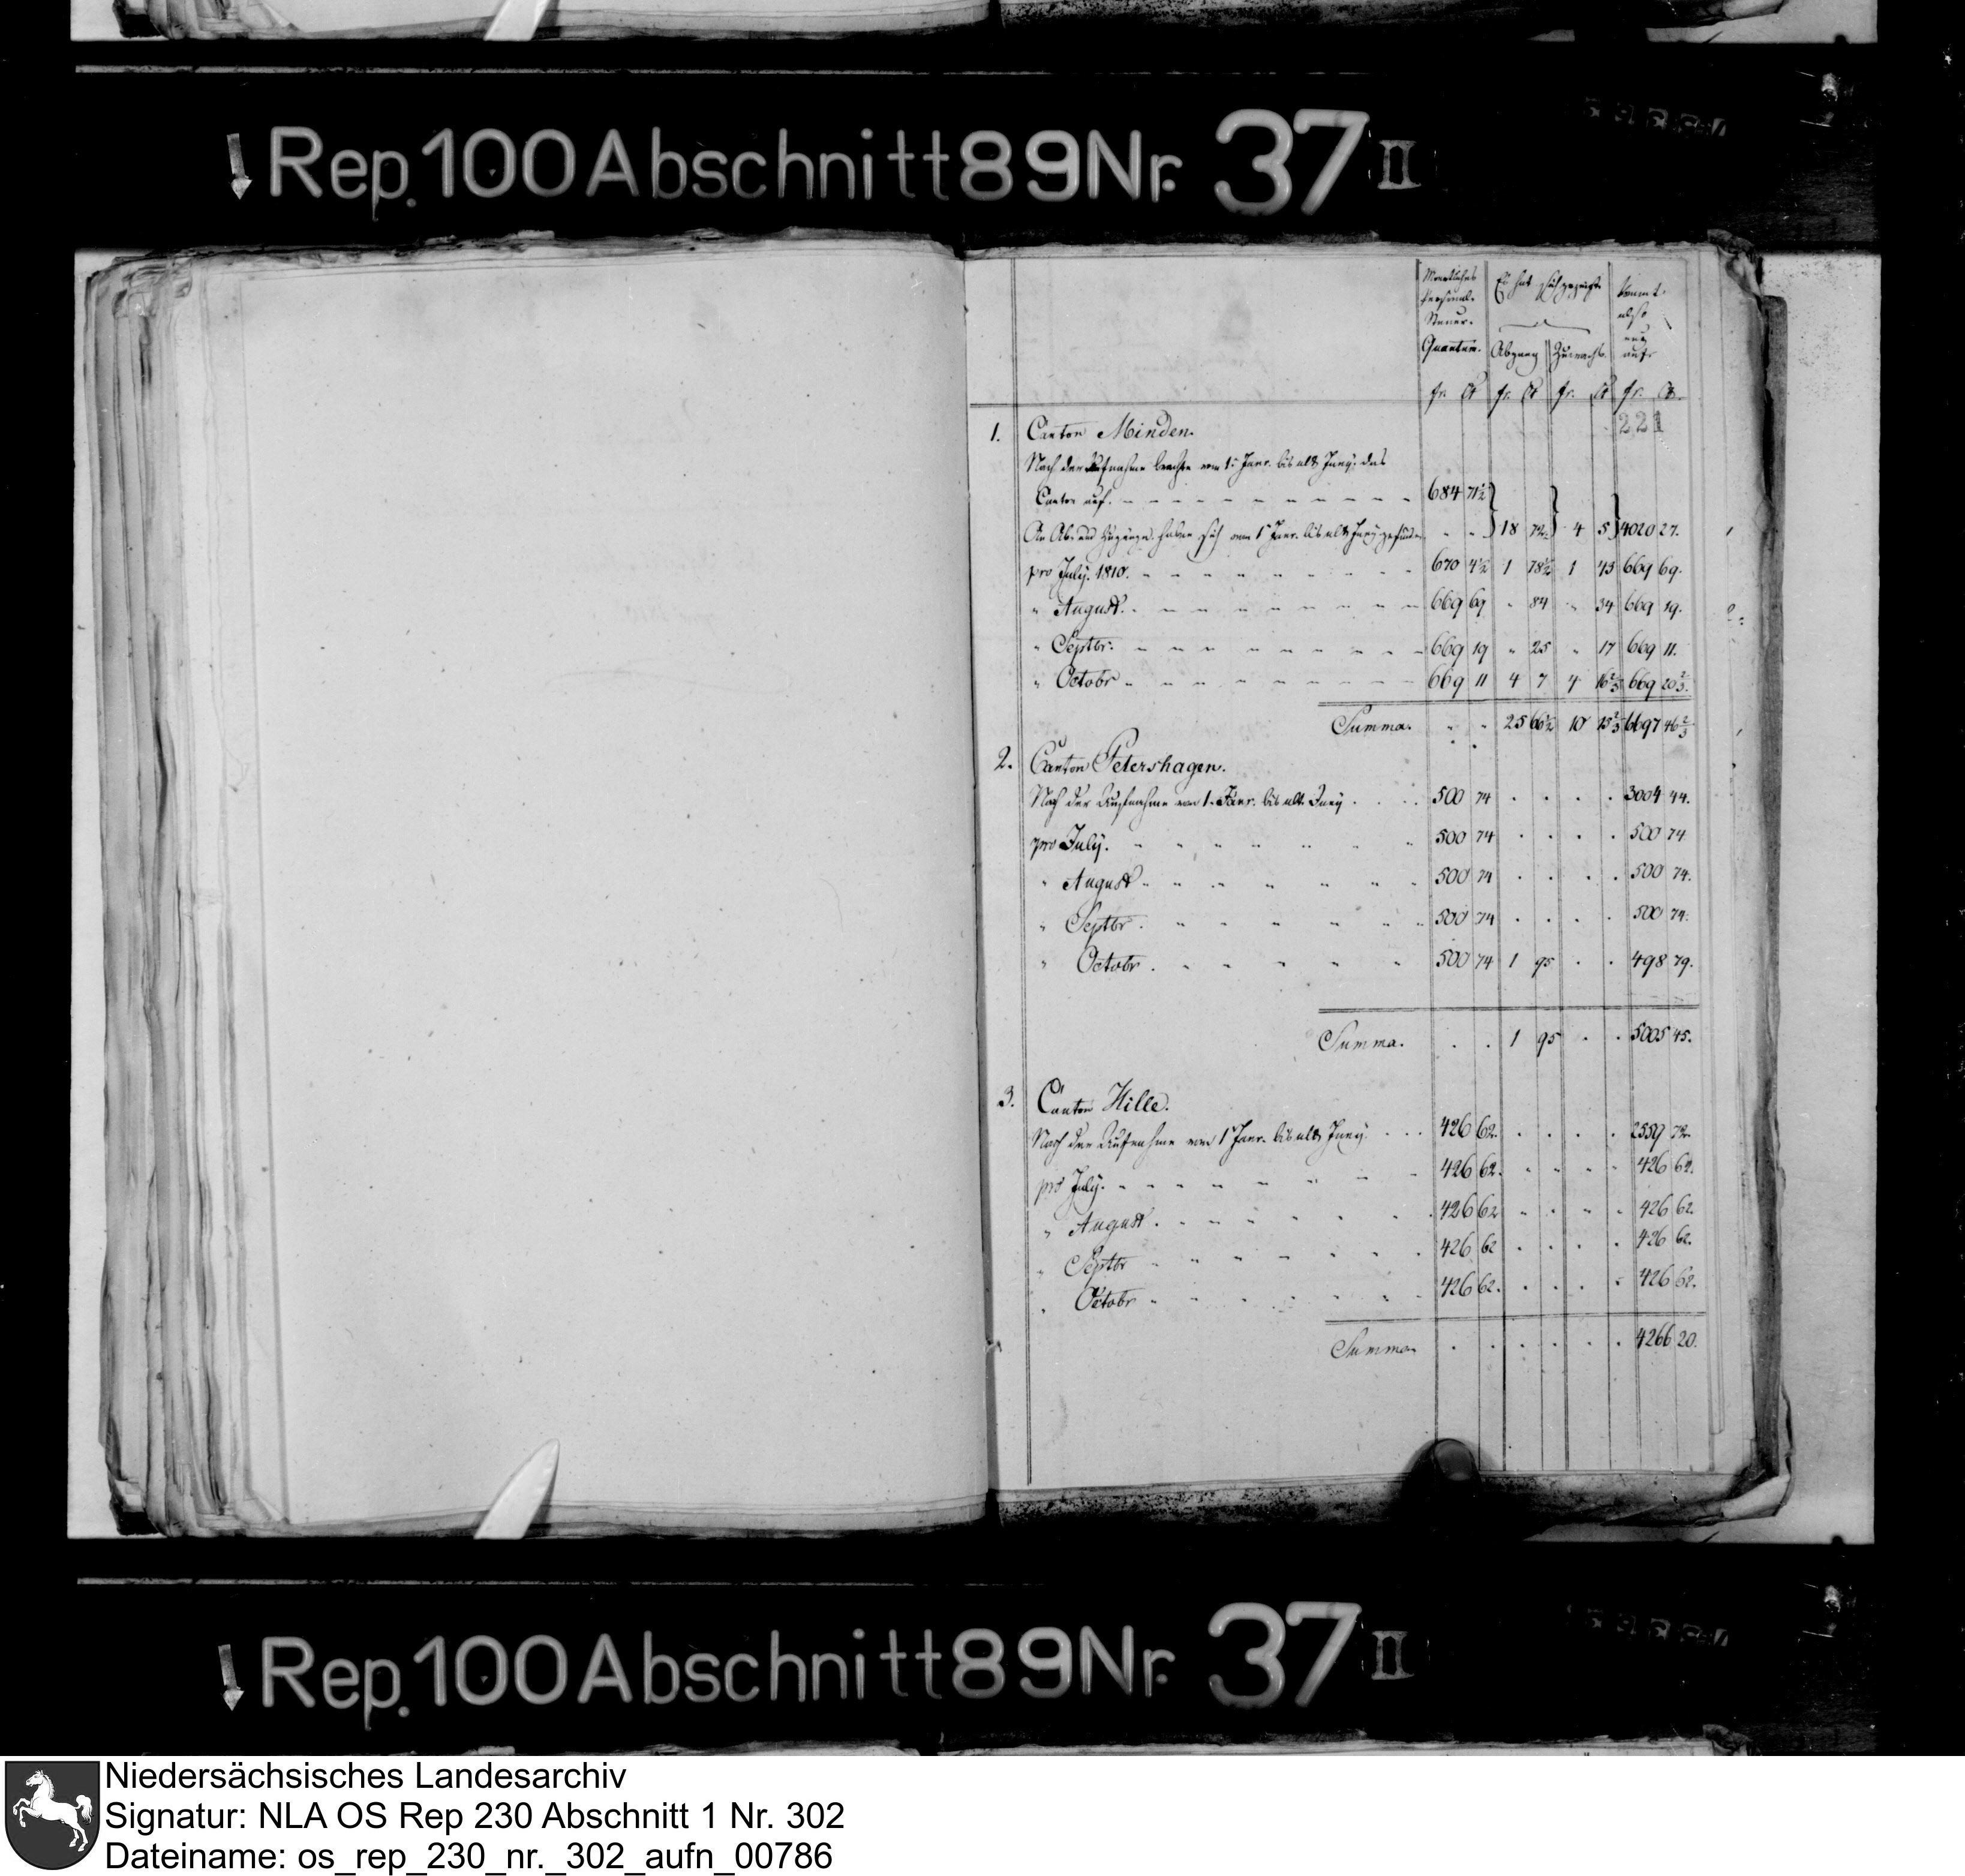 Rep. 100 Abschnitt 89 Nr. 37 II
Monatliches Personal-Steuer-Quantum.
Es hat sich gezeigt
kommt also nur auf
Abgang Zuwachs
fr. Ct fr. Ct fr. Ct fr. Ct.
221
1. Canton Minden.
Nach der Aufnahme brachte vom 1. Janr. bis ult. Juny das
Canton auf. 684 71½
An Ab- und Zugänge haben sich vom 1 Janr. bis ult. Juny gefunden 18 72 4 5 4020 27.
pro July. 1810. 670 4½ 1 78½ 1 43 669 69.
" August. 669 69 " 84 " 34 669 19.
" Septbr. 669 19 " 25 " 17 669 11.
" Octobr 669 11 4 7 4 16⅔ 669 20⅔.
Summa. 25 66½ 10 15⅔ 6697 46⅔
2. Canton Petershagen.
Nach der Aufnahme vom 1. Janr. bis ult. Juny 500 74 3004 44.
pro July. 500 74 500 74
" August 500 74 500 74.
" Septbr. 500 74 500 74.
" Octobr. 500 74 1 95 498 79.
Summa. 1 95 5005 45.
3. Canton Hille.
Nach der Aufnahme vom 1 Janr. bis ult. Juny 426 62. 2559 72.
pro July. 426 62. 426 62.
" August. 426 62 426 62.
" Septbr 426 62 426 62.
" Octobr 426 62. 426 62.
Summa 4266 20.
Rep. 100 Abschnitt 89 Nr. 37 II
Niedersächsisches Landesarchiv
Signatur: NLA OS Rep 230 Abschnitt 1 Nr. 302
Dateiname: os_rep_230_nr._302_aufn_00786